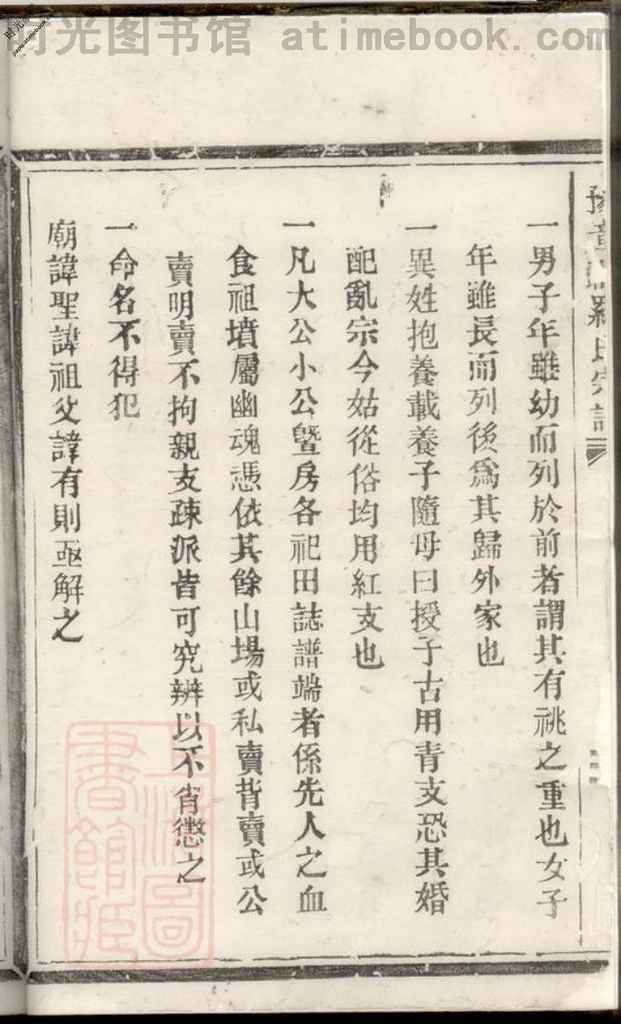 时光图书馆 atimebook.com
羅氏宗譜
一男子年雖幼而列於前者謂其有祧之重也女子
年雖長而列後爲其歸外家也
一異姓抱養載養子隨母曰授子古用青支恐其婚
配亂宗今姑從俗均用紅支也
一凡大公小公曁房各祀田誌譜端者係先人之血
食祖墳屬幽魂憑依其餘山場或私賣背賣或公
賣明賣不拘親支疎派皆可究辨以不肖懲之
一命名不得犯
廟諱聖諱祖父諱有則亟解之